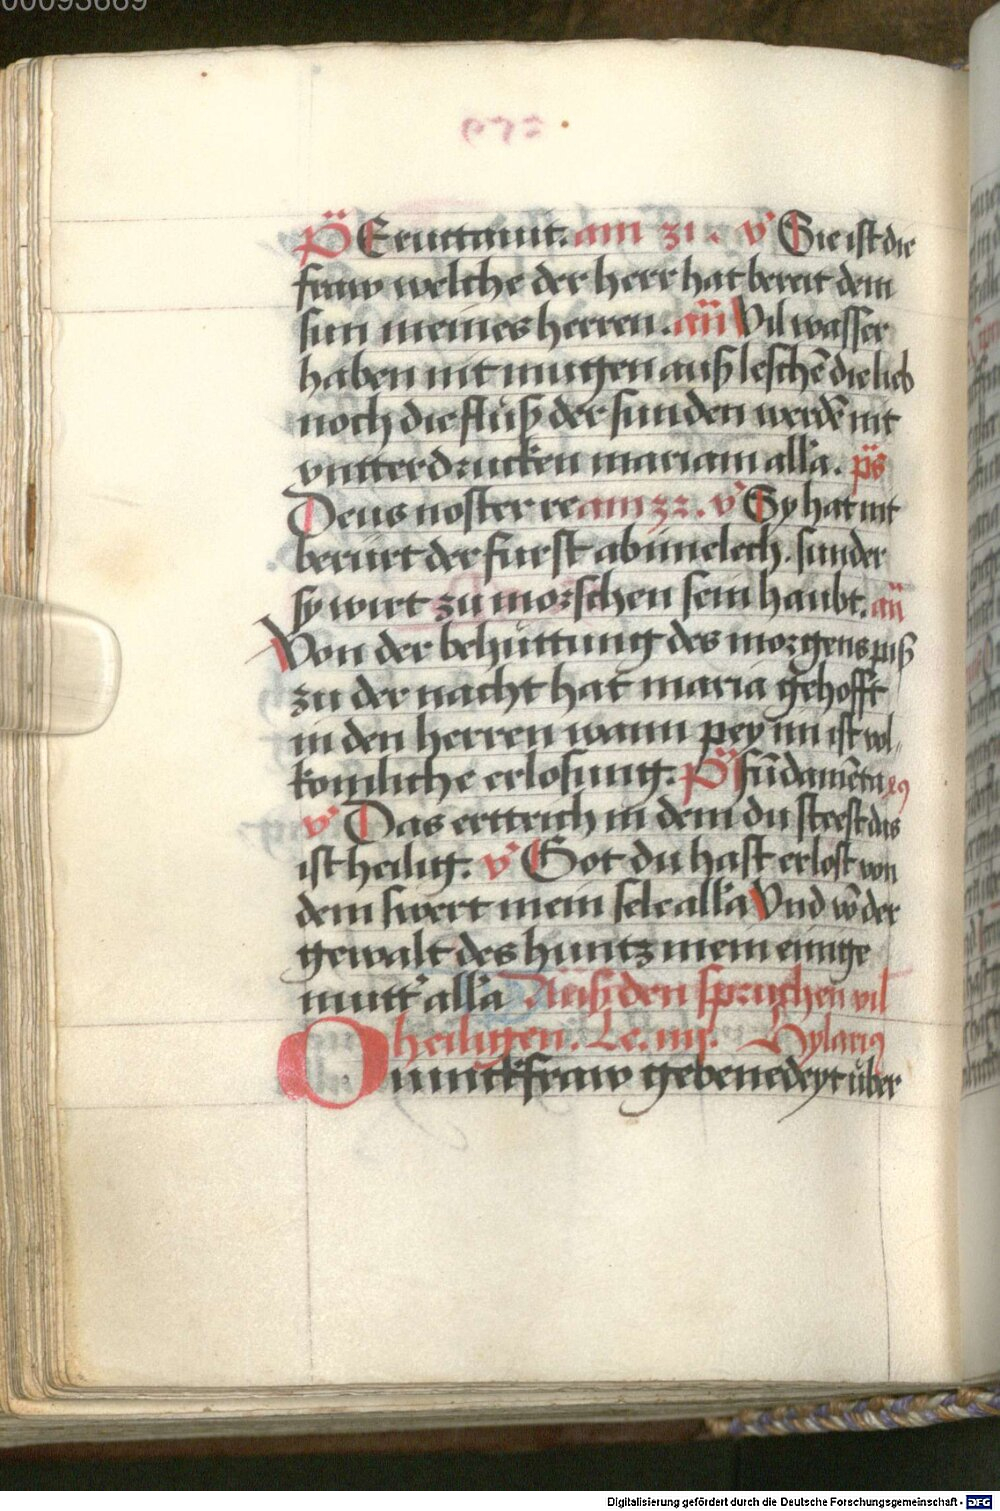 00093669
Ps Eructauit. am 31. v Sie ist die
fraw welche der herr hat bereit dem
sun meines herren. an̄ Vil wasser
haben nit mugen auß leschē die lieb
noch die fluß der sunden werdē nit
vntterdrucken mariam alla. ps
Deus noster re am 32. v Sy hat nit
berurt der furst abimelech. sunder
sy wirt zu morschen sein haubt. an̄
Von der behuttung des morgens piß
zu der nacht hat maria gehofft
in den herren wann pey im ist vol
komliche erlosung. Ps fūdamēta
v Das ertreich in dem du steest das
ist heilig. v Got du hast erlost von
dem swert mein sele alla Vnd vō der
gewalt des huntz mein einige
mutt' alla Auß den spruchen vil
heiligen. Le. iiij. Hylarius
O iunckfraw gebenedeyt uber
Digitalisierung gefördert durch die Deutsche Forschungsgemeinschaft - DFG